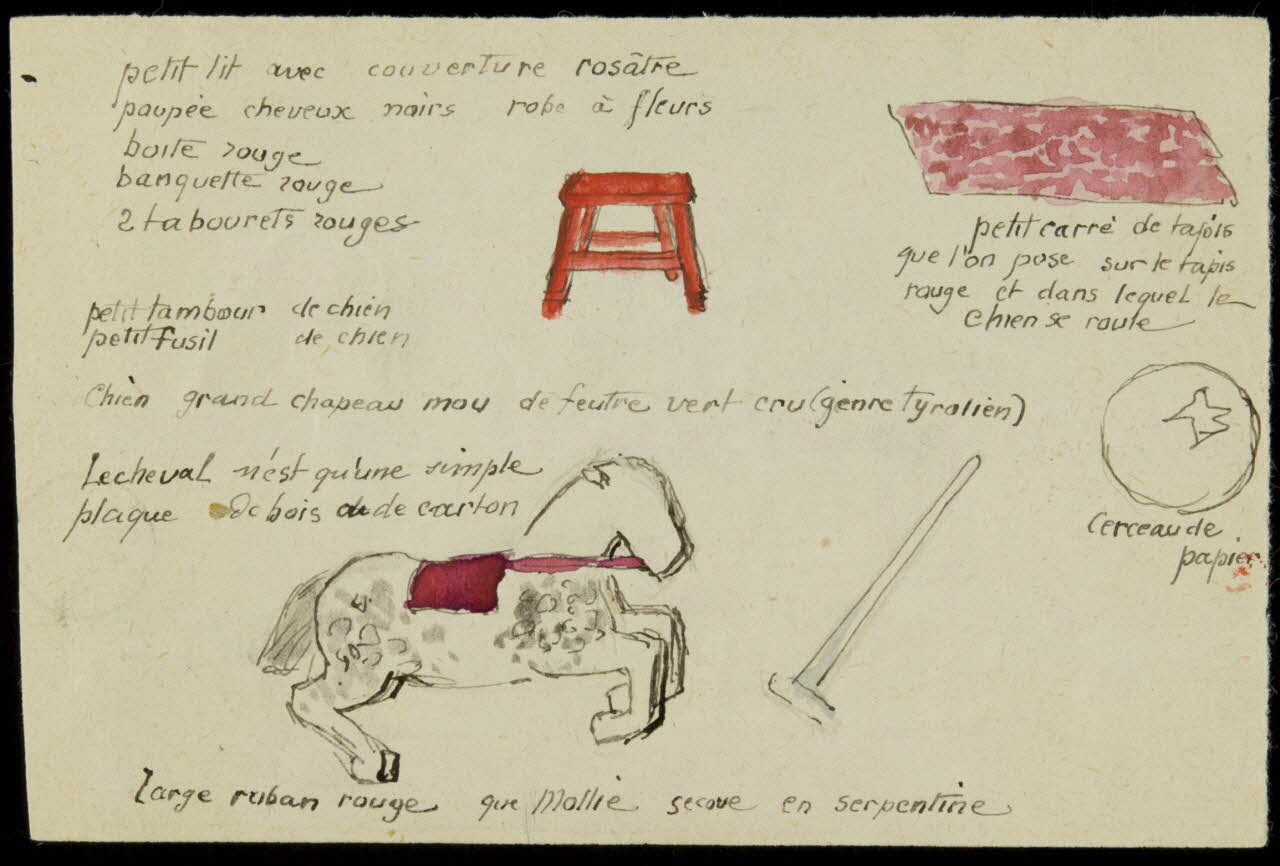 petit lit avec couverture rosâtre
poupée cheveux noirs robe à fleurs
boite rouge
banquette rouge
2 tabourets rouges
petit carré de tapis
que l'on pose sur le tapis
rouge et dans lequel le
chien se roule
petit tambour de chien
petit fusil de chien
Chien grand chapeau mou de feutre vert cru (genre tyrolien)
Le cheval n'est qu'une simple
plaque de bois ou de carton
Cerceau de
papier
large ruban rouge que Mollie secoue en serpentine